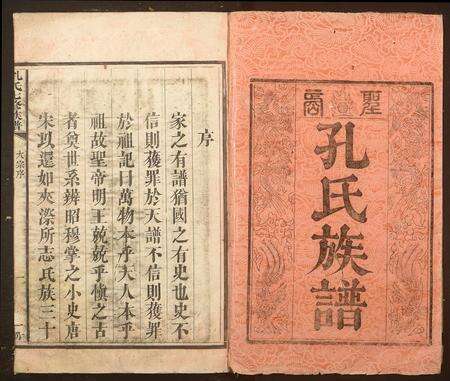 聖裔
孔氏族譜
序
家之有譜猶國之有史也史不
信則獲罪於天譜不信則獲罪
於祖記曰萬物本乎天人本乎
祖故聖帝明王兢兢乎愼之古
者奠世系辨昭穆掌之小史唐
宋以還如夾漈所志氏族三十
孔氏族譜
大宗序